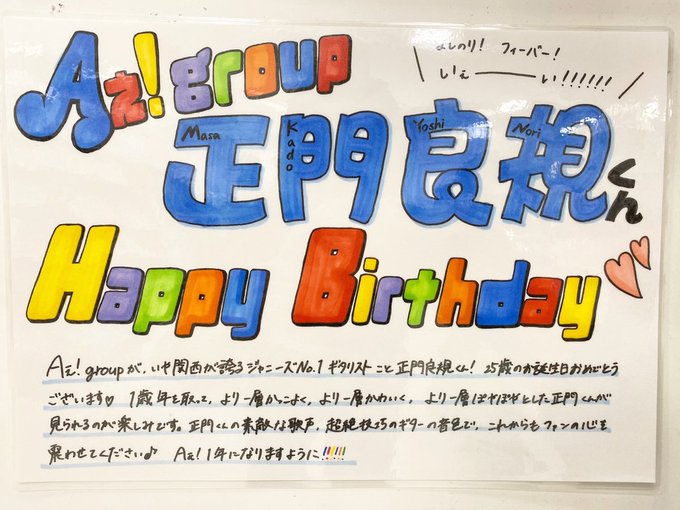 Aぇ! group
よしのり! フィーバー!
しぇーーい!!!!!!
Masa Kado Yoshi Nori
正門良規くん
Happy Birthday
Aぇ! groupが、いや関西が誇るジャニーズNo.1ギタリストこと正門良規くん! 25歳のお誕生日おめでとう
ございます♡ 1歳年を取って、より一層かっこよく、より一層かわいく、より一層ぽやぽやとした正門くんが
見られるのが楽しみです。正門くんの素敵な歌声、超絶技巧のギターの音色で、これからもファンの心を
震わせてください♪ Aぇ! 1年になりますように!!!!!